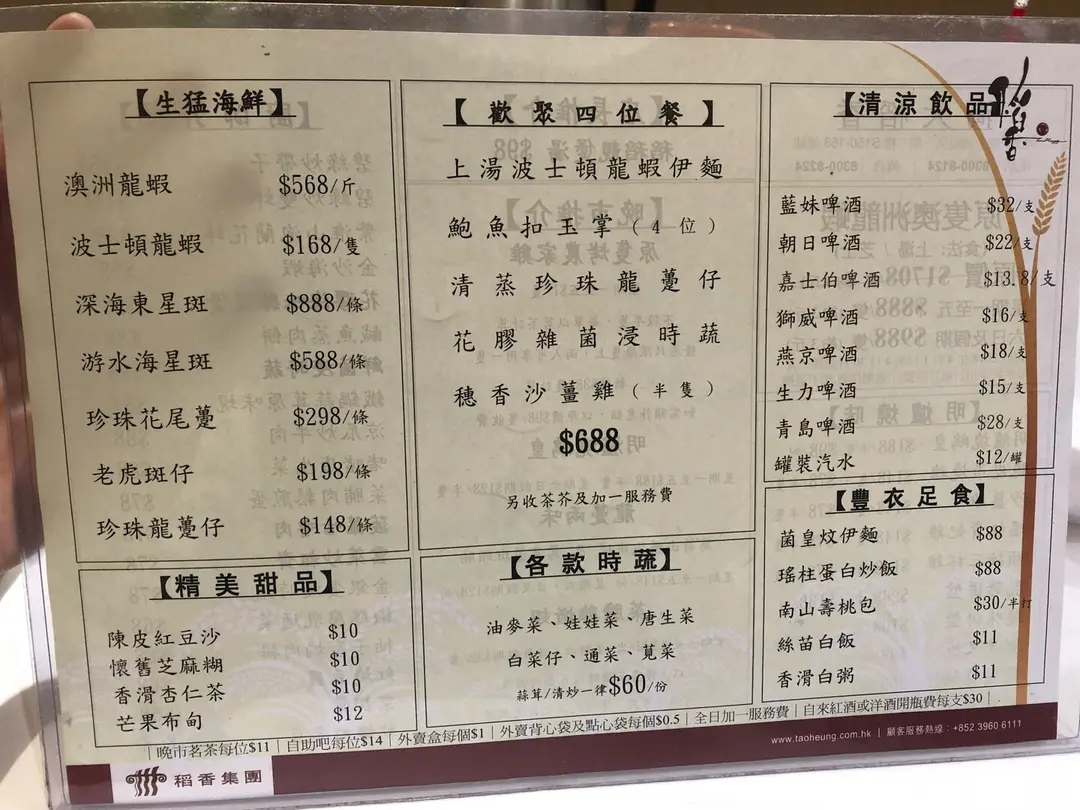 【生猛海鮮】
澳洲龍蝦 $568/斤
波士頓龍蝦 $168/隻
深海東星斑 $888/條
游水海星斑 $588/條
珍珠花尾躉 $298/條
老虎斑仔 $198/條
珍珠龍躉仔 $148/條
【精美甜品】
陳皮紅豆沙 $10
懷舊芝麻糊 $10
香滑杏仁茶 $10
芒果布甸 $12
【歡聚四位餐】
上湯波士頓龍蝦伊麵
鮑魚扣玉掌（4位）
清蒸珍珠龍躉仔
花膠雜菌浸時蔬
穗香沙薑雞（半隻）
$688
另收茶芥及加一服務費
【各款時蔬】
油麥菜、娃娃菜、唐生菜
白菜仔、通菜、莧菜
蒜茸/清炒一律$60/份
【清涼飲品】
藍妹啤酒 $32/支
朝日啤酒 $22/支
嘉士伯啤酒 $13.8/支
獅威啤酒 $16/支
燕京啤酒 $18/支
生力啤酒 $15/支
青島啤酒 $28/支
罐裝汽水 $12/罐
【豐衣足食】
菌皇炆伊麵 $88
瑤柱蛋白炒飯 $88
南山壽桃包 $30/半打
絲苗白飯 $11
香滑白粥 $11
稻香
| 晚市茗茶每位$11 | 自助吧每位$14 | 外賣盒每個$1 | 外賣背心袋及點心袋每個$0.5 | 全日加一服務費 | 自來紅酒或洋酒開瓶費每支$30 |
稻香集團
www.taoheung.com.hk | 顧客服務熱線：+852 3960 6111